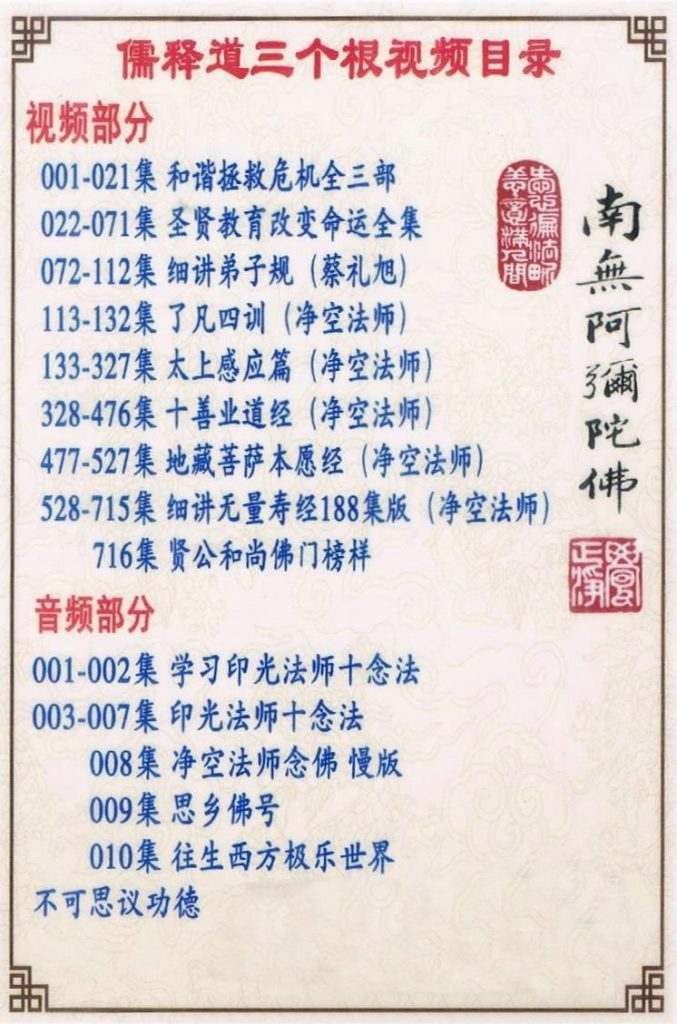 儒释道三个根视频目录
视频部分
001-021集 和谐拯救危机全三部
022-071集 圣贤教育改变命运全集
072-112集 细讲弟子规（蔡礼旭）
113-132集 了凡四训（净空法师）
133-327集 太上感应篇（净空法师）
328-476集 十善业道经（净空法师）
477-527集 地藏菩萨本愿经（净空法师）
528-715集 细讲无量寿经188集版（净空法师）
716集 贤公和尚佛门榜样
音频部分
001-002集 学习印光法师十念法
003-007集 印光法师十念法
008集 净空法师念佛 慢版
009集 思乡佛号
010集 往生西方极乐世界
不可思议功德
南無阿彌陀佛